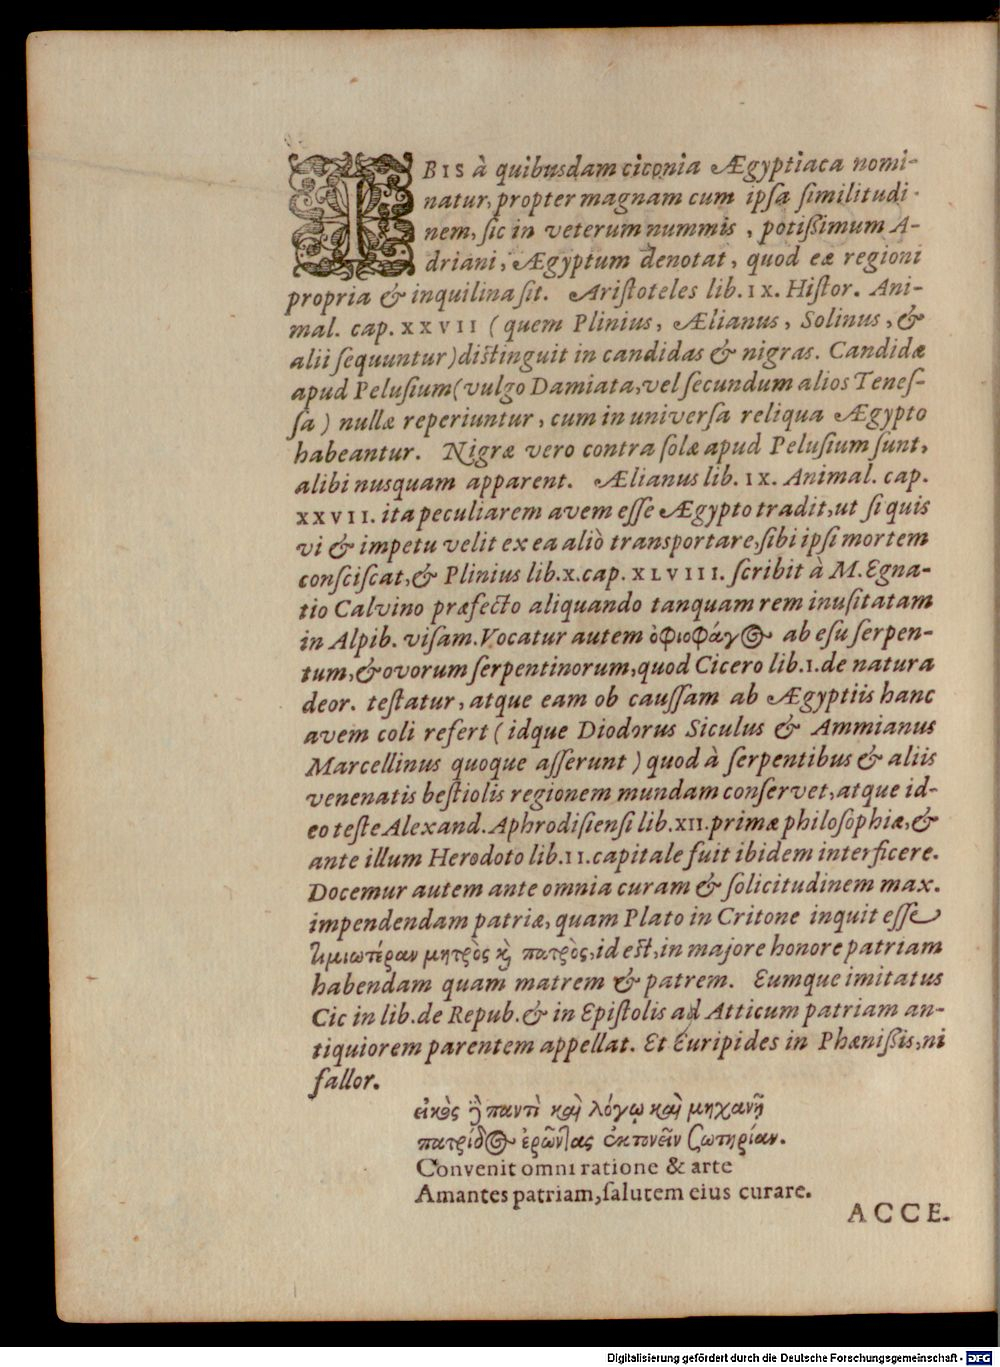 IBIS à quibusdam ciconia Ægyptiaca nomi-
natur, propter magnam cum ipsa similitudi-
nem, sic in veterum nummis, potißimum A-
driani, Ægyptum denotat, quod eæ regioni
propria & inquilina sit. Aristoteles lib. IX. Histor. Ani-
mal. cap. XXVII (quem Plinius, Ælianus, Solinus, &
alii sequuntur) distinguit in candidas & nigras. Candidæ
apud Pelusium (vulgo Damiata, vel secundum alios Tenes-
sa) nullæ reperiuntur, cum in universa reliqua Ægypto
habeantur. Nigræ vero contra solæ apud Pelusium sunt,
alibi nusquam apparent. Ælianus lib. IX. Animal. cap.
XXVII. ita peculiarem avem esse Ægypto tradit, ut si quis
vi & impetu velit ex ea aliò transportare, sibi ipsi mortem
consciscat, & Plinius lib. X. cap. XLVIII. scribit à M. Egna-
tio Calvino præfecto aliquando tanquam rem inusitatam
in Alpib. visam. Vocatur autem ὀφιοφάγος ab esu serpen-
tum, & ovorum serpentinorum, quod Cicero lib. 1. de natura
deor. testatur, atque eam ob caussam ab Ægyptiis hanc
avem coli refert (idque Diodorus Siculus & Ammianus
Marcellinus quoque asserunt) quod à serpentibus & aliis
venenatis bestiolis regionem mundam conservet, atque id-
eo teste Alexand. Aphrodisiensi lib. XII. primæ philosophiæ, &
ante illum Herodoto lib. II. capitale fuit ibidem interficere.
Docemur autem ante omnia curam & solicitudinem max.
impendendam patriæ, quam Plato in Critone inquit esse
τιμιωτέραν μητρὸς καὶ πατρὸς, id est, in majore honore patriam
habendam quam matrem & patrem. Eumque imitatus
Cic in lib. de Repub. & in Epistolis ad Atticum patriam an-
tiquiorem parentem appellat. Et Euripides in Phænißis, ni
fallor.
εἰκὸς παντὶ καὶ λόγῳ καὶ μηχανῇ
πατρίδος ἐρῶντας ἐκπονεῖν σωτηρίαν.
Convenit omni ratione & arte
Amantes patriam, salutem eius curare.
ACCE.
Digitalisierung gefördert durch die Deutsche Forschungsgemeinschaft - DFG